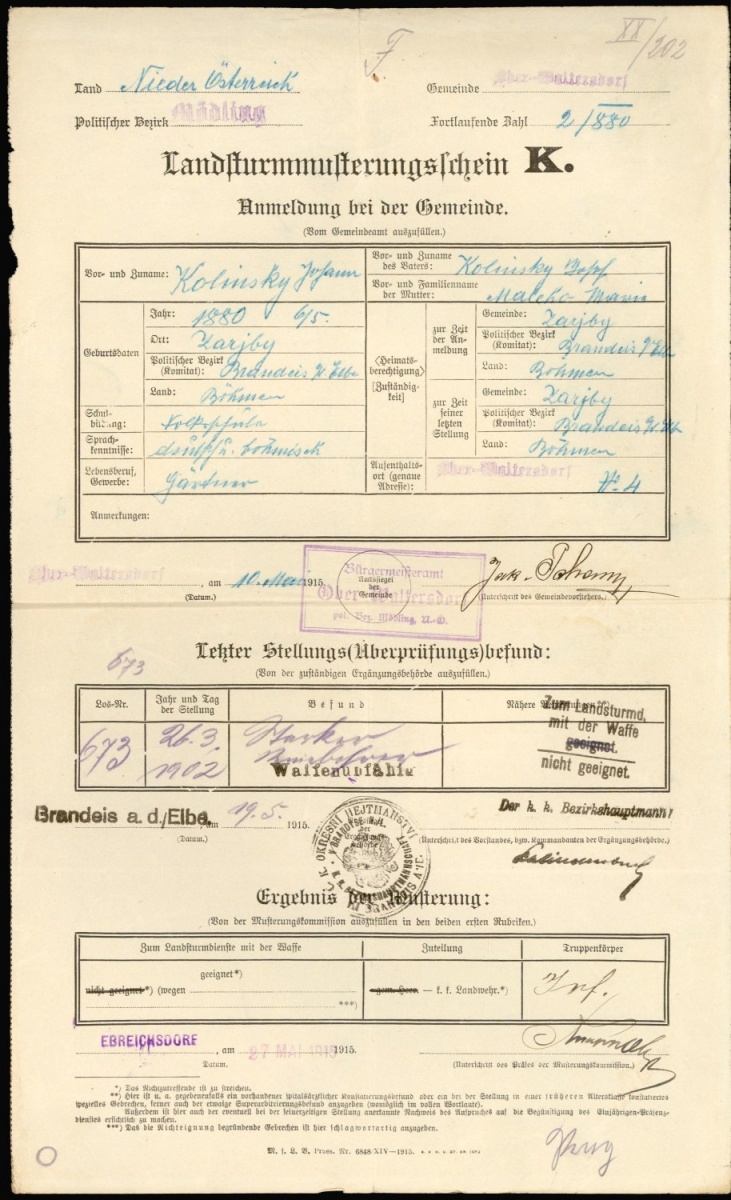 F
XX/202
Land Nieder Österreich
Gemeinde Ober-Waltersdorf
Politischer Bezirk Mödling
Fortlaufende Zahl 2/880
Landsturmmusterungsschein K.
Anmeldung bei der Gemeinde.
(Vom Gemeindeamt auszufüllen.)
Vor- und Zuname: Kolinsky Johann
Vor- und Zuname des Vaters: Kolinsky Josef
Vor- und Familienname der Mutter: Marie
Geburtsdaten
Jahr: 1880 6/5.
Ort: Zarjby
Politischer Bezirk (Komitat): Brandeis a/Elbe
Land: Böhmen
Schulbildung: Volksschule
Sprachkenntnisse: deutsch u. böhmisch
Lebensberuf, Gewerbe: Gärtner
<Heimatsberechtigung> [Zuständigkeit]
zur Zeit der Anmeldung
Gemeinde: Zarjby
Politischer Bezirk (Komitat): Brandeis a/Elbe
Land: Böhmen
zur Zeit seiner letzten Stellung
Gemeinde: Zarjby
Politischer Bezirk (Komitat): Brandeis a/Elbe
Land: Böhmen
Aufenthaltsort (genaue Adresse): Ober-Waltersdorf No 4
Anmerkungen:
Ober-Waltersdorf, am 10. Mai 1915.
(Datum.)
Bürgermeisteramt
Amtssiegel der Gemeinde
Ober-Waltersdorf
pol. Bez. Mödling, N.-Ö.
(Unterschrift des Gemeindevorstehers.)
673
Letzter Stellungs(Überprüfungs)befund:
(Von der zuständigen Ergänzungsbehörde auszufüllen.)
Los-Nr.
Jahr und Tag der Stellung
Befund
Nähere
673
26.3. 1902
Starker
Waffenunfähig
Zum Landsturmd.
mit der Waffe
geeignet.
nicht geeignet.
Brandeis a. d./Elbe, am 19.5. 1915.
(Datum.)
C. K. OKRESNÍ HEJTMANSTVÍ V BRANDÝSE N.L.
K. K. BEZIRKSHAUPTMANNSCHAFT BRANDEIS A/E.
Der k. k. Bezirkshauptmann:
(Unterschrift des Vorstandes, bzw. Kommandanten der Ergänzungsbehörde.)
Ergebnis der Musterung:
(Von der Musterungskommission auszufüllen in den beiden ersten Rubriken.)
Zum Landsturmdienste mit der Waffe
Zuteilung
Truppenkörper
geeignet*)
nicht geeignet*) (wegen
***)
gem. Heer — k. k. Landwehr.*)
Inf.
EBREICHSDORF, am 27 MAI 1915 1915.
Datum.
(Unterschrift des Präses der Musterungskommission.)
*) Das Nichzutreffende ist zu streichen.
**) Hier ist u. a. gegebenenfalls ein vorhandener spitalsärztlicher Konstatierungsbefund oder ein bei der Stellung in einer früheren Altersklasse konstatiertes
spezielles Gebrechen, ferner auch der etwaige Superarbitrierungsbefund anzugeben (womöglich im vollen Wortlaute).
Außerdem ist hier auch der eventuell bei der seinerzeitigen Stellung anerkannte Nachweis des Anspruches auf die Begünstigung des Einjährigen-Präsenz-
dienstes ersichtlich zu machen.
***) Das die Nichteignung begründende Gebrechen ist hier schlagwortartig anzugeben.
M. f. L. V. Praes. Nr. 6848/XIV—1915.